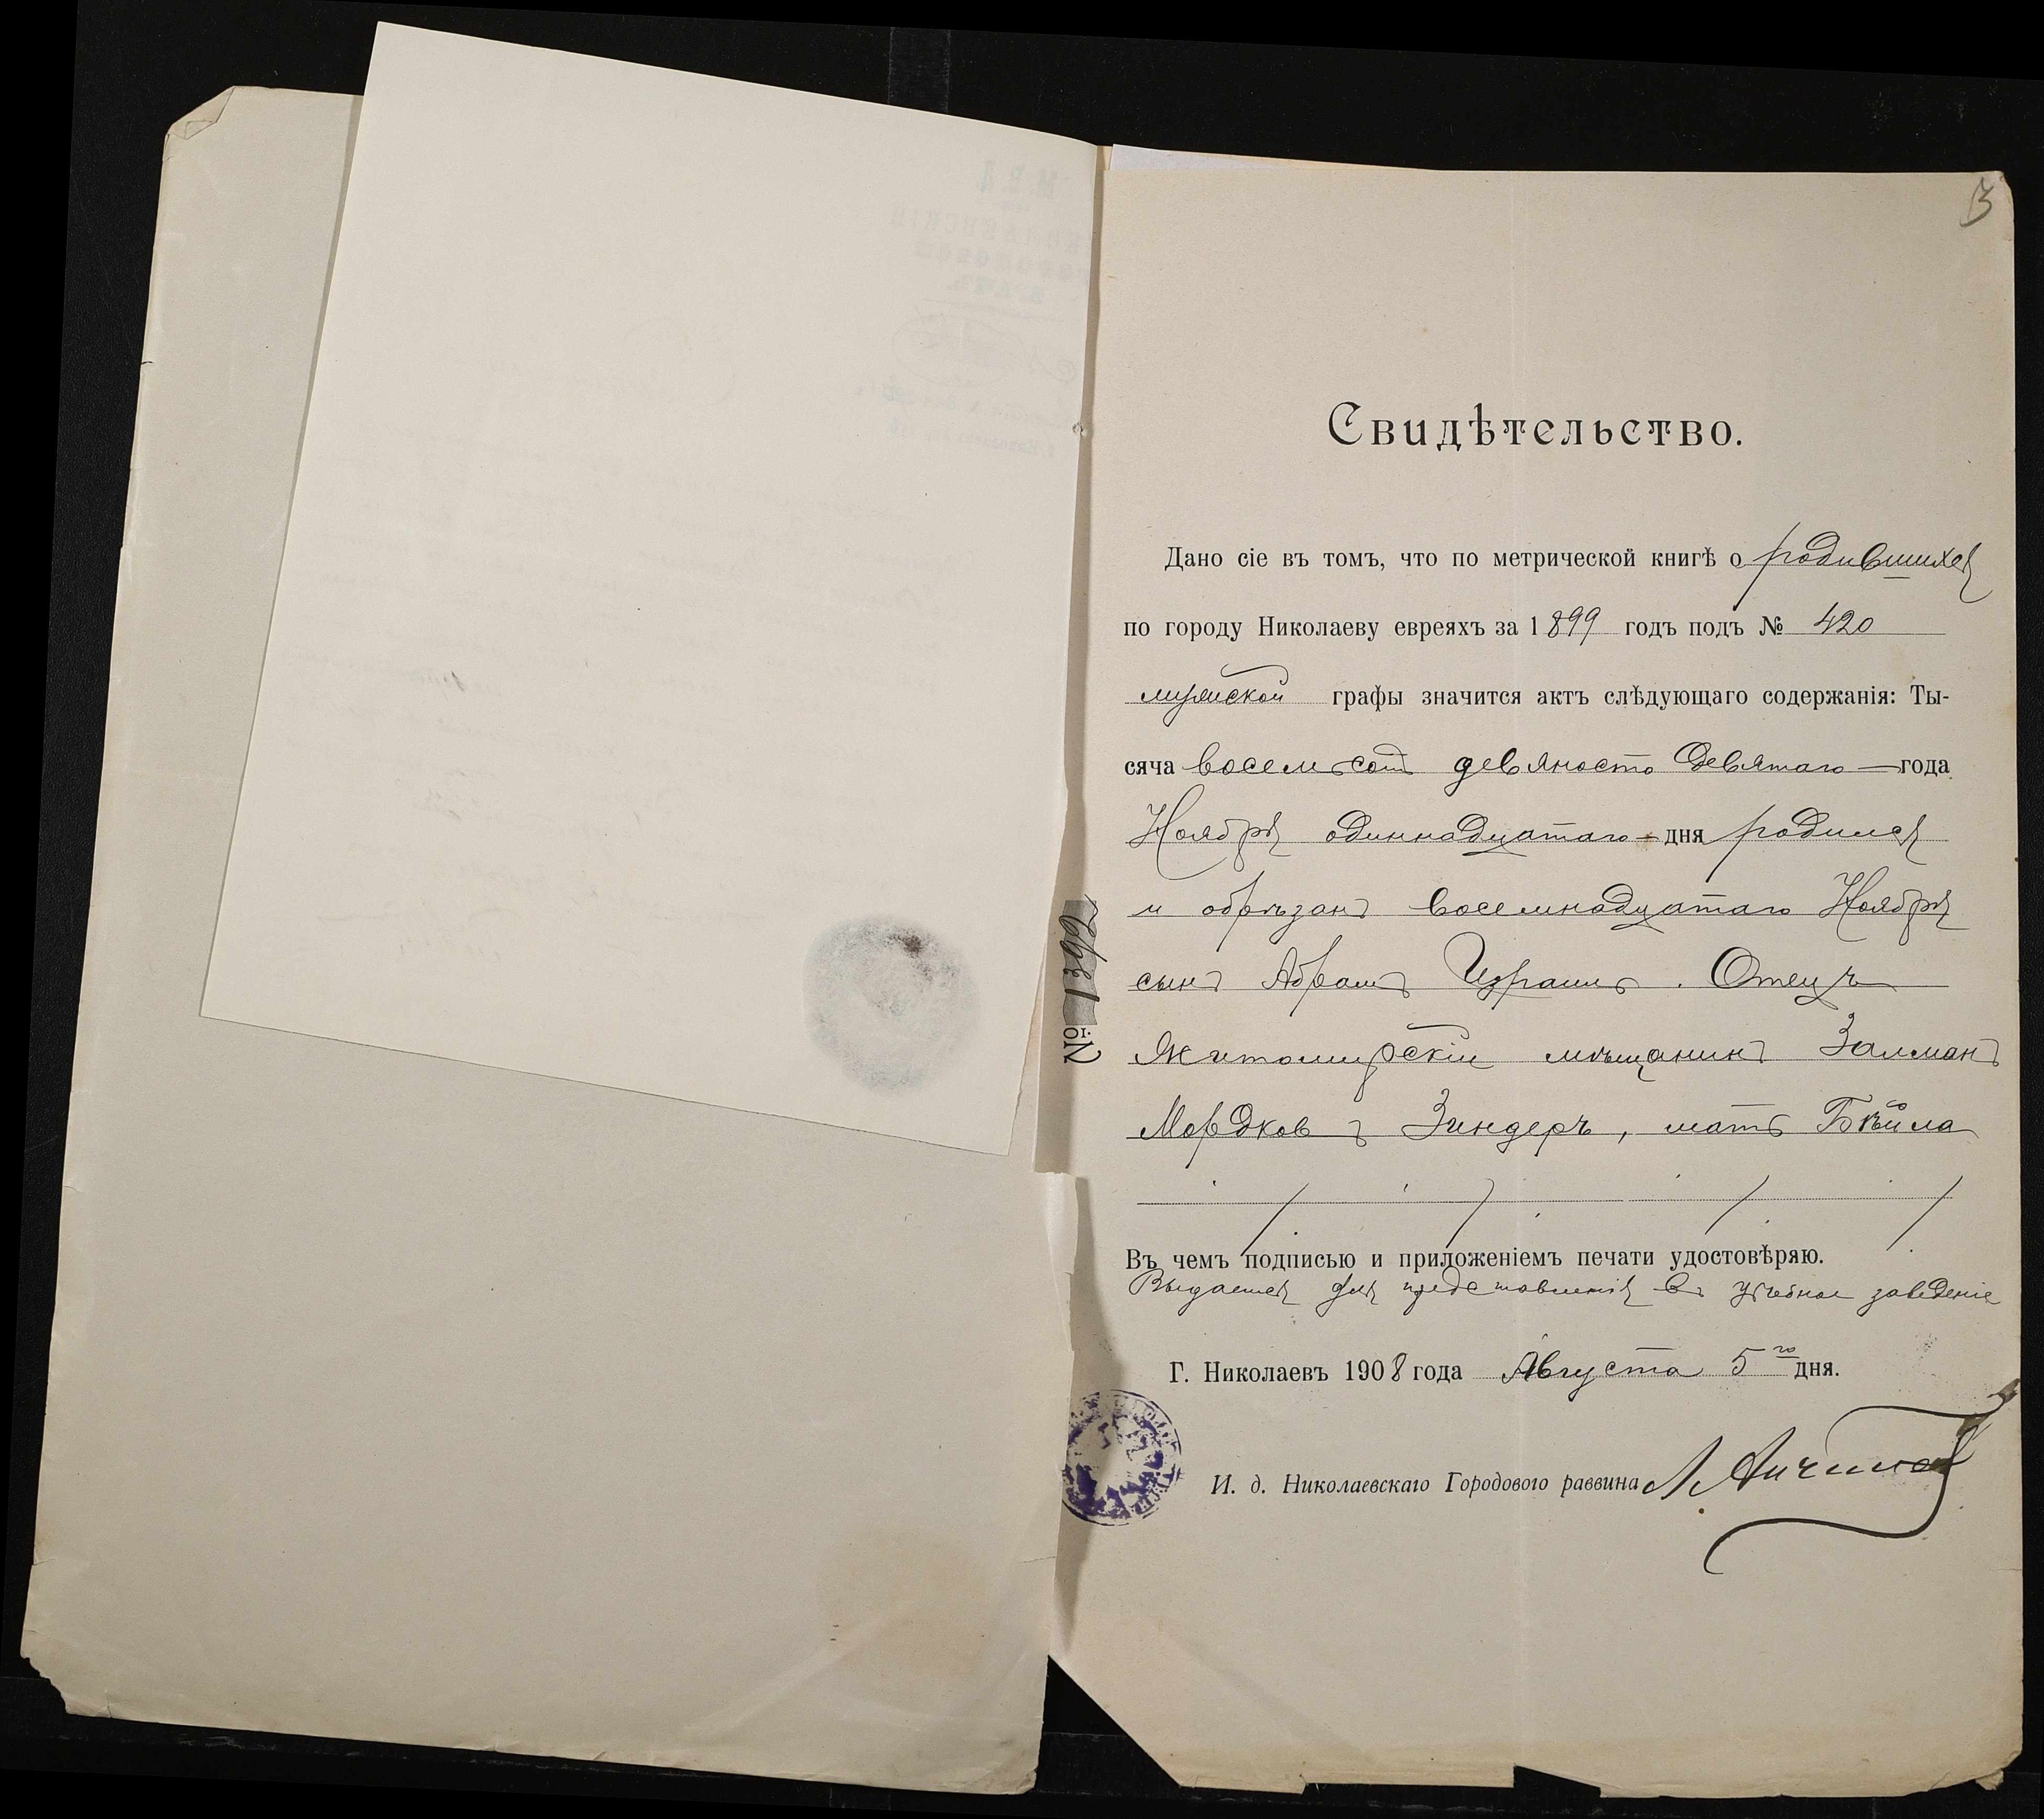 3
Свидѣтельство.
Дано сіе въ томъ, что по метрической книгѣ о родившихся
по городу Николаеву евреяхъ за 1899 годъ подъ № 420
мужской графы значится актъ слѣдующаго содержанія: Ты-
сяча восемьсот девяносто девятаго года
Ноября одиннадцатаго дня родился
и обрѣзанъ восемнадцатаго Ноября
сынъ Абрамъ Израиль. Отецъ
Житомирскій мѣщанинъ Залманъ
Мордковъ Зиндеръ, мать Бейла
Въ чемъ подписью и приложеніемъ печати удостовѣряю.
Выдается для представленія въ учебное заведеніе
Г. Николаевъ 1908 года Августа 5го дня.
И. д. Николаевскаго Городового раввина
№ 1399